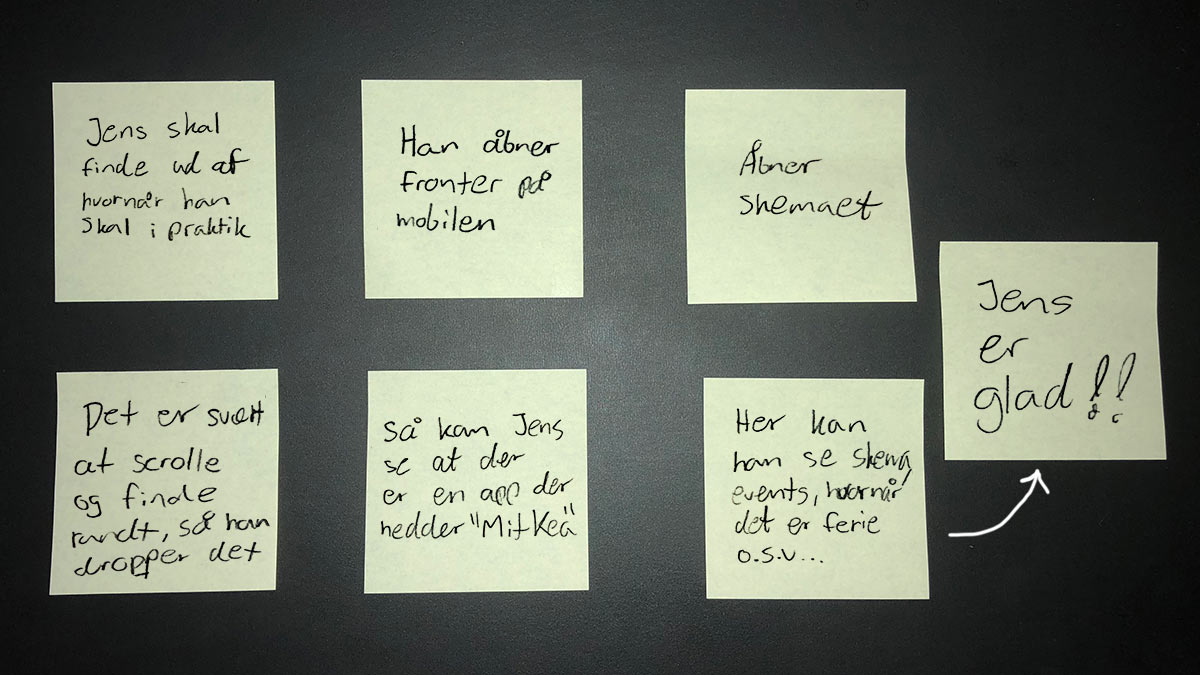 Jens skal
finde ud af
hvornår han
skal i praktik
Han åbner
fronter på
mobilen
Åbner
skemaet
Det er svært
at scrolle
og finde
rundt, så han
dropper det
Så kan Jens
se at der
er en app der
hedder "MitKea"
Her kan
han se skema,
events, hvornår
det er ferie
o.s.v...
Jens
er
glad!!